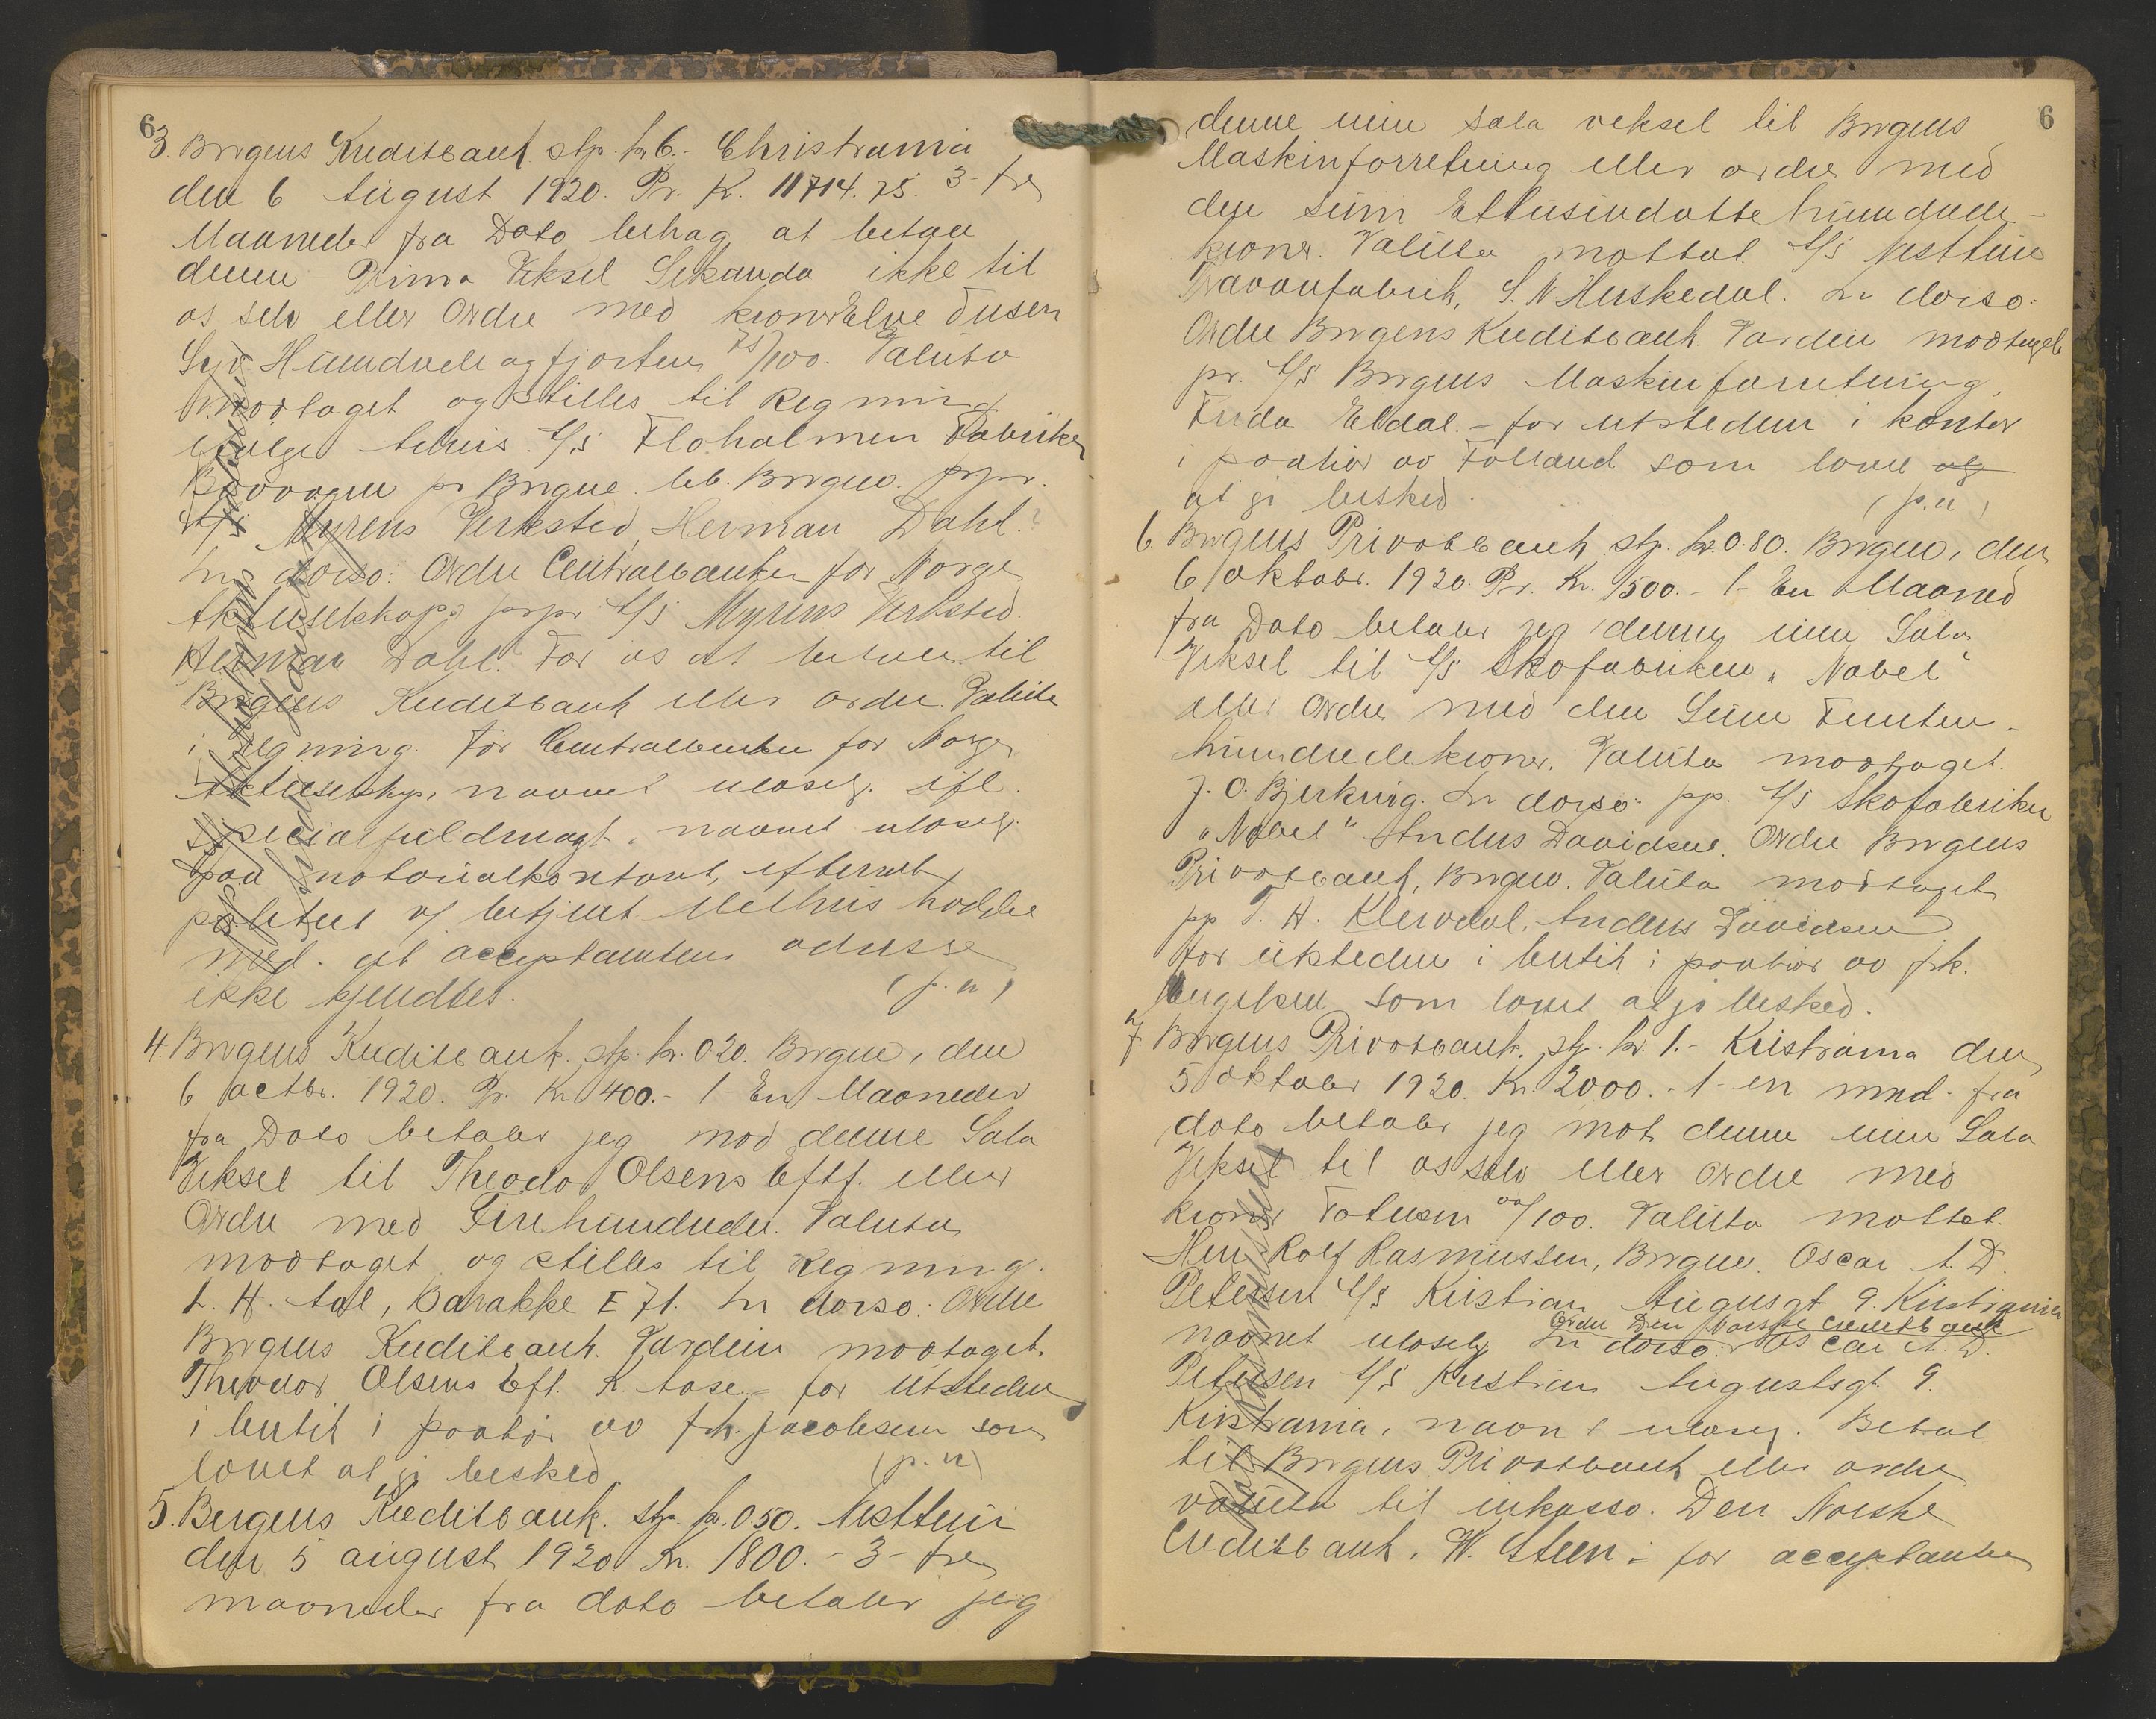 6
3. Bergens Kreditbank stp. kr. 6.- Christiania
den 6 August 1920. Pr. K. 11714.75. 3- tre
Maaneder fra Dato behag at betale
denne Prima Veksel Sekunda ikke til
os selv eller Ordre med kroner Elve Tusen
Syv Hundrede og fjorten 75/100. Valuta
modtaget og stilles til Regning
ifølge A/S Floholmen Fabriker
pr Bergen. Bergen. prpr.
A/S Myrens Verksted, Herman Dahl.
In dorso: Ordre Centralbanken for Norge
Aktieselskap. prpr. A/S Myrens Verksted.
Herman Dahl. For os at betale til
Bergens Kreditbank eller ordre Valuta
i regning. For Centralbanken for Norge
Aktieselskap, navnet ulæselig. ifl.
Specialfuldmagt. navnet ulæselig.
paa notarialkontoret, efterat
politiet v/ betjent hadde
med. at acceptantens adresse
ikke kjendtes. (p.n)
4. Bergens Kreditbank. stp. kr. 0.20. Bergen, den
6 octbr. 1920. Pr. Kr. 400.- 1- En Maaneder
fra Dato betaler jeg mod denne Sola
Veksel til Theodor Olsens Eftf. eller
Ordre med Firehundrede. Valuta
modtaget og stilles til Regning.
L. H. Aal, Barakke E 71. In dorso: Ordre
Bergens Kreditbank. Værdien modtaget.
Theodor Olsens Eft. K. Aase.- for Utstederen
i butik i paahør av frk. Jacobsen som
lovet at gi besked (p.n)
5. Bergens Kreditbank. stp. kr. 0.50. Nesttun
den 5 august 1920 Kr. 1800.- 3- tre
maaneder fra dato betaler jeg
6
denne min sola veksel til Bergens
Maskinforretning eller ordre med
den sum Ettusindotte hundrede-
kroner. Valuta mottat. A/S Nesttun
S. N. Huskedal. In dorso:
Ordre Bergens Kreditbank. Værdien modtaget
pr. A/S Bergens Maskinforretning,
Frida Eldal.- for utstederen i kontor
i paahør av Folland som lovet og
at gi besked. (p.n)
6. Bergens Privatbank stp. kr. 0.80. Bergen, den
6 oktobr. 1920. Pr. Kr. 1500.- 1- En Maaned
fra Dato betaler jeg denne min Sola
Veksel til A/S Skofabriken "Nobel"
eller Ordre med den Sum Femten-
hundredekroner. Valuta modtaget.
J. O. Bjerkvig. In dorso: pp. A/S Skofabriken
"Nobel" Anders Davidsen. Ordre Bergens
Privatbank, Bergen. Valuta modtaget
pp T. H. Klevdal. Anders Davidsen
for utstederen i butik i paahør av frk.
som lovet at gi besked.
7. Bergens Privatbank. stp. kr. 1.- Kristiania den
5 oktober 1920. Kr. 2000.- 1- en mnd. fra
dato betaler jeg mot denne min Sola
Veksel til os selv eller Ordre med
kroner Totusen 00/100. Valuta mottat.
Herr Rolf Rasmussen, Bergen. Oscar A. D.
Petersen A/S Kristian Augusgt 9. Kristiania
Ordre Den Norske Creditbank
navnet ulæselig In dorso: Oscar A. D.
Petersen A/S Kristian Augustsgt 9.
Kristiania, navnet ulæselig. Betal
til Bergens Privatbank eller ordre
valuta til inkasso. Den Norske
Creditbank. W. Steen.- for acceptanten